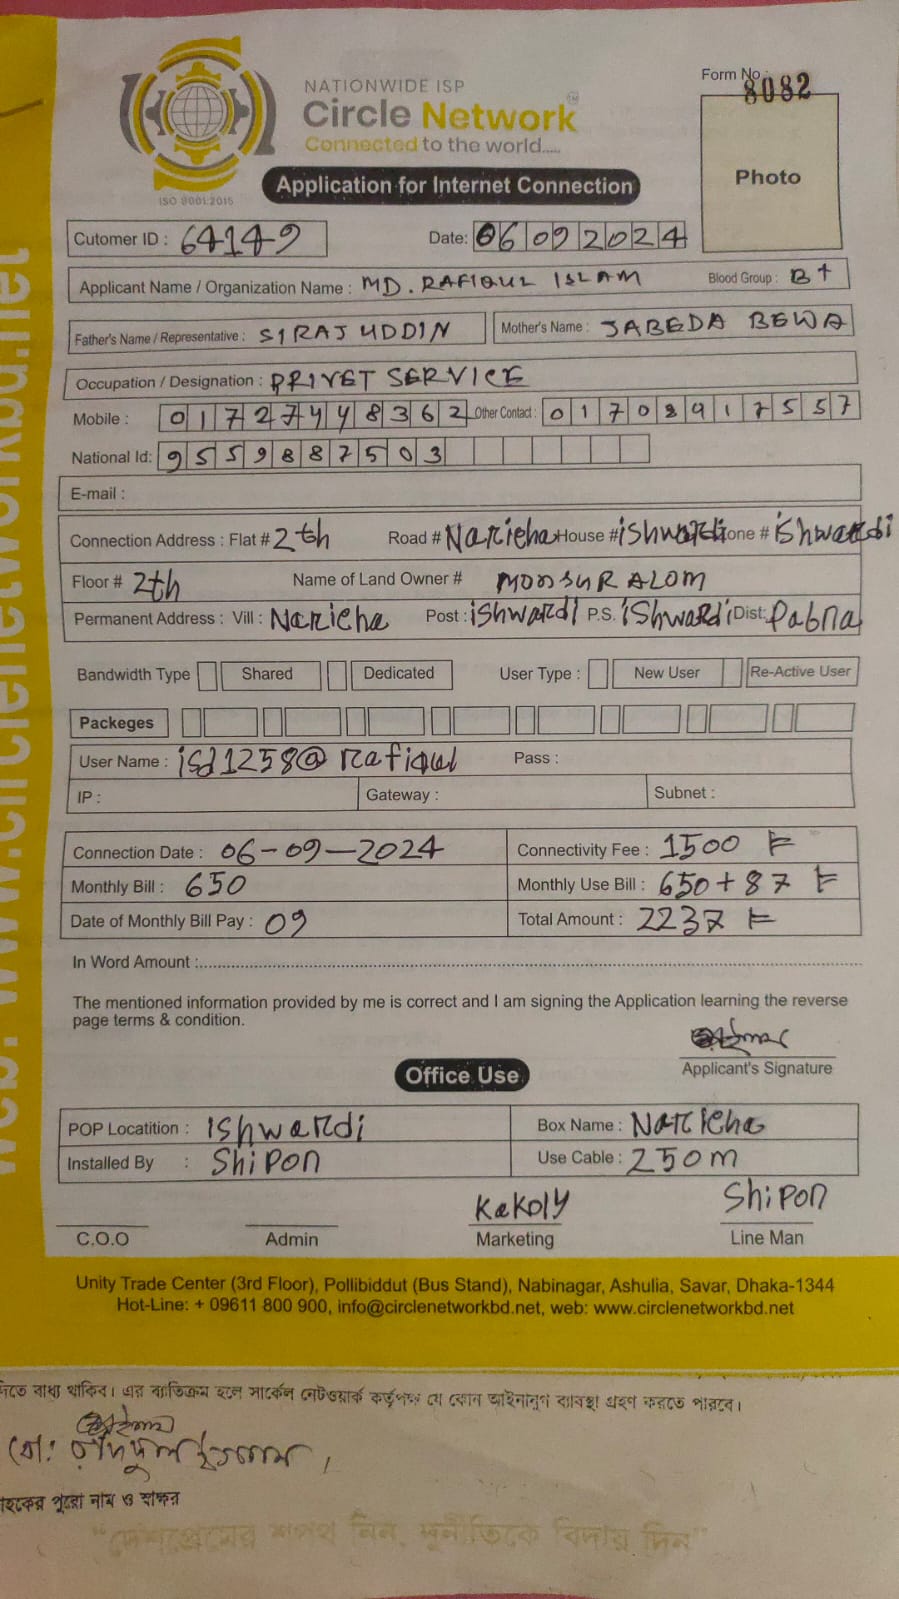 NATIONWIDE ISP
Circle Network
Connected to the world.....
ISO 9001:2015
Form No.: 8082
Photo
Application for Internet Connection
Cutomer ID : 64149 Date: 06092024
Applicant Name / Organization Name : MD. RAFIQUL ISLAM Blood Group : B+
Father's Name / Representative : SIRAJ UDDIN Mother's Name : JABEDA BEWA
Occupation / Designation : PRIVET SERVICE
Mobile : 01727448362 Other Contact : 01708917557
National Id: 9559887503
E-mail :
Connection Address : Flat # 2th Road # Naricha House # ishwardi Zone # ishwardi
Floor # 2th Name of Land Owner # MONSUR ALOM
Permanent Address : Vill : Naricha Post : ishwardi P.S. iShwardi Dist: Pabna
Bandwidth Type Shared Dedicated User Type : New User Re-Active User
Packeges
User Name : isd1258@rafiqul Pass :
IP : Gateway : Subnet :
Connection Date : 06-09-2024 Connectivity Fee : 1500 ৳
Monthly Bill : 650 Monthly Use Bill : 650+87 ৳
Date of Monthly Bill Pay : 09 Total Amount : 2237 ৳
In Word Amount :
The mentioned information provided by me is correct and I am signing the Application learning the reverse
page terms & condition.
Applicant's Signature
Office Use
POP Locatition : Ishwardi Box Name : Naricha
Installed By : Shipon Use Cable : 250m
Kakoly Shipon
C.O.O Admin Marketing Line Man
Unity Trade Center (3rd Floor), Pollibiddut (Bus Stand), Nabinagar, Ashulia, Savar, Dhaka-1344
Hot-Line: + 09611 800 900, info@circlenetworkbd.net, web: www.circlenetworkbd.net
web: www.circlenetworkbd.net
দিতে বাধ্য থাকিব। এর ব্যতিক্রম হলে সার্কেল নেটওয়ার্ক কর্তৃপক্ষ যে কোন আইনানুগ ব্যবস্থা গ্রহণ করতে পারবে।
মো: রফিকুল ইসলাম
গ্রাহকের পুরো নাম ও স্বাক্ষর
"দেশপ্রেমের শপথ নিন, দুর্নীতিকে বিদায় দিন"